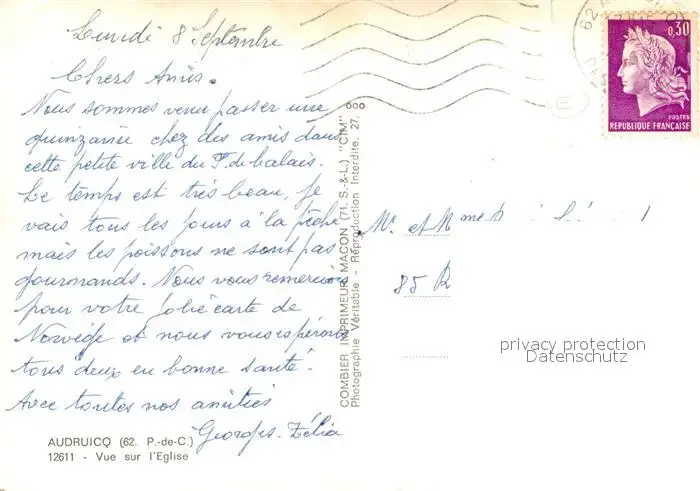 Lundi 8 Septembre
Chers Amis.
Nous sommes venu passer une
quinzaine chez des amis dans
cette petite ville du P. de Calais.
Le temps est très beau, je
vais tous les jours à la pêche
mais les poissons ne sont pas
gourmands. Nous vous remercions
pour votre jolie carte de
Norvège et nous vous espérons
tous deux en bonne santé.
Avec toutes nos amitiés
Georges. Zélia
AUDRUICQ (62. P.-de-C.)
12611 - Vue sur l'Eglise
COMBIER IMPRIMEUR MACON (71. S.-&-L.) "CIM"
Photographie Véritable - Reproduction Interdite. 27.
62
0,30
POSTES
REPUBLIQUE FRANÇAISE
E
M. et Mme
85 R
privacy protection
Datenschutz